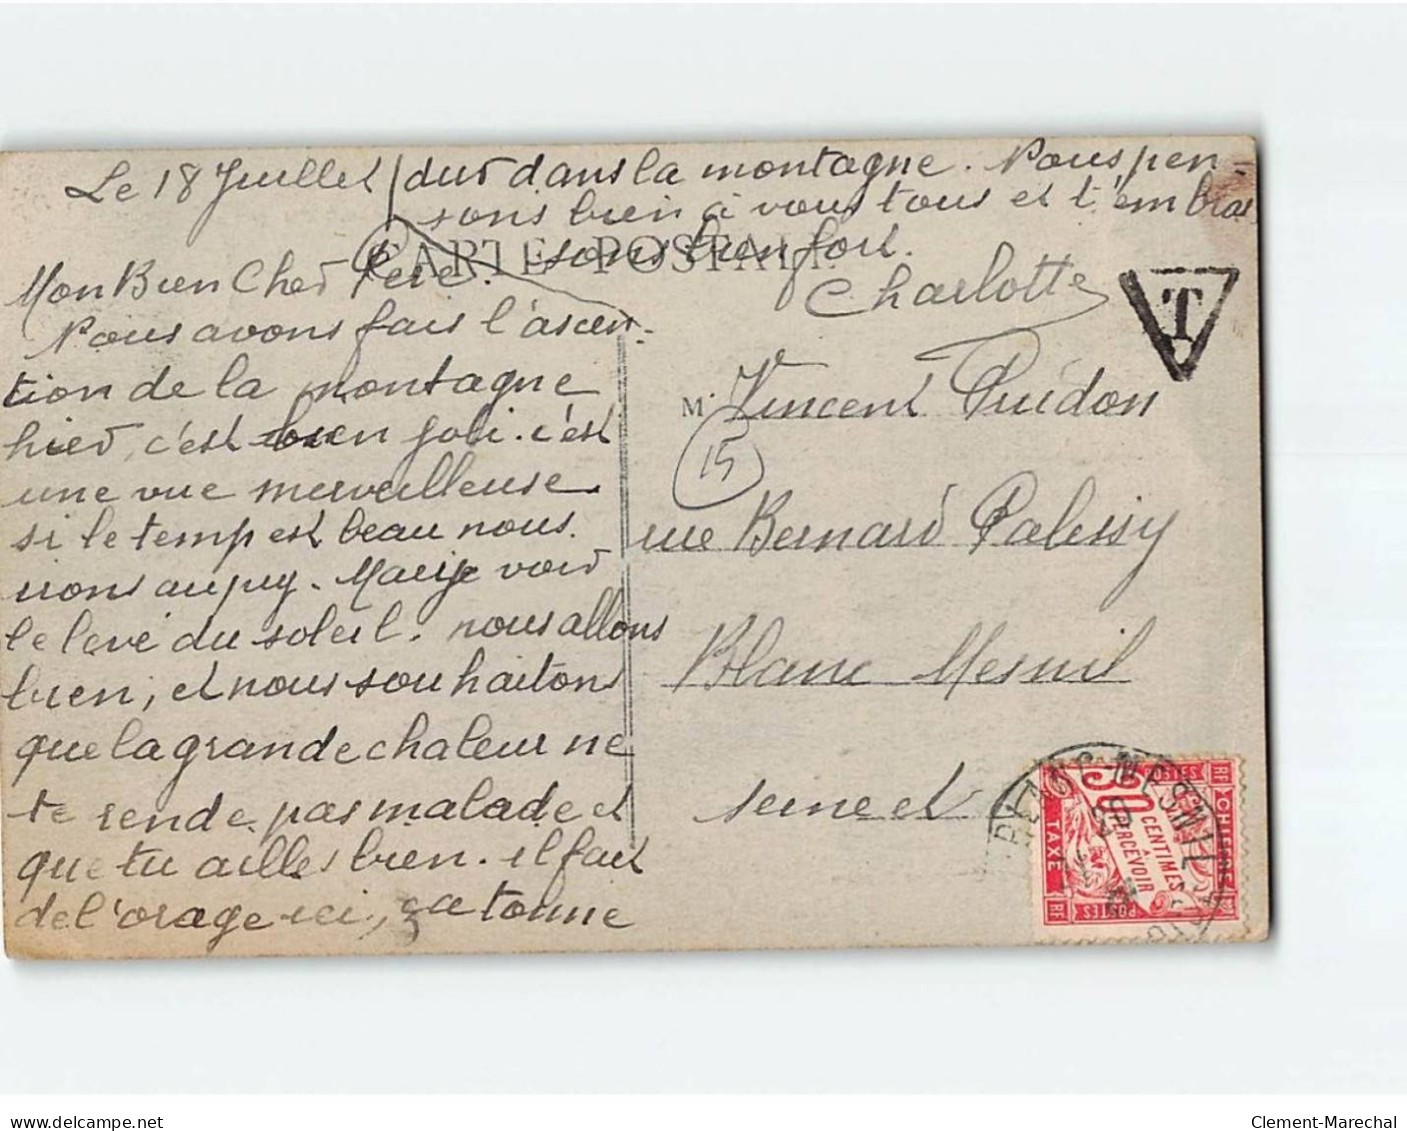 Le 18 Juillet
Mon Bien Cher Père.
Nous avons fais l'ascen-
tion de la montagne
hier, c'est bien joli. c'est
une vue merveilleuse
si le temp est beau nous
irons au puy. voir
le levé du soleil. nous allons
bien, et nous souhaitons
que la grande chaleur ne
te rende pas malade et
que tu ailles bien. il fait
de l'orage ici, ça tonne
dur dans la montagne. Nous pen-
sons bien à vous tous et t'embras
sons bien fort.
Charlotte
CARTE POSTALE
T
M. Vincent Guidon
15
rue Bernard Palissy
Blanc Mesnil
seine et
BLANC-MESNIL
RF CHIFFRE TAXE RF POSTES
50 CENTIMES À PERCEVOIR
delcampe.net
Clement-Marechal